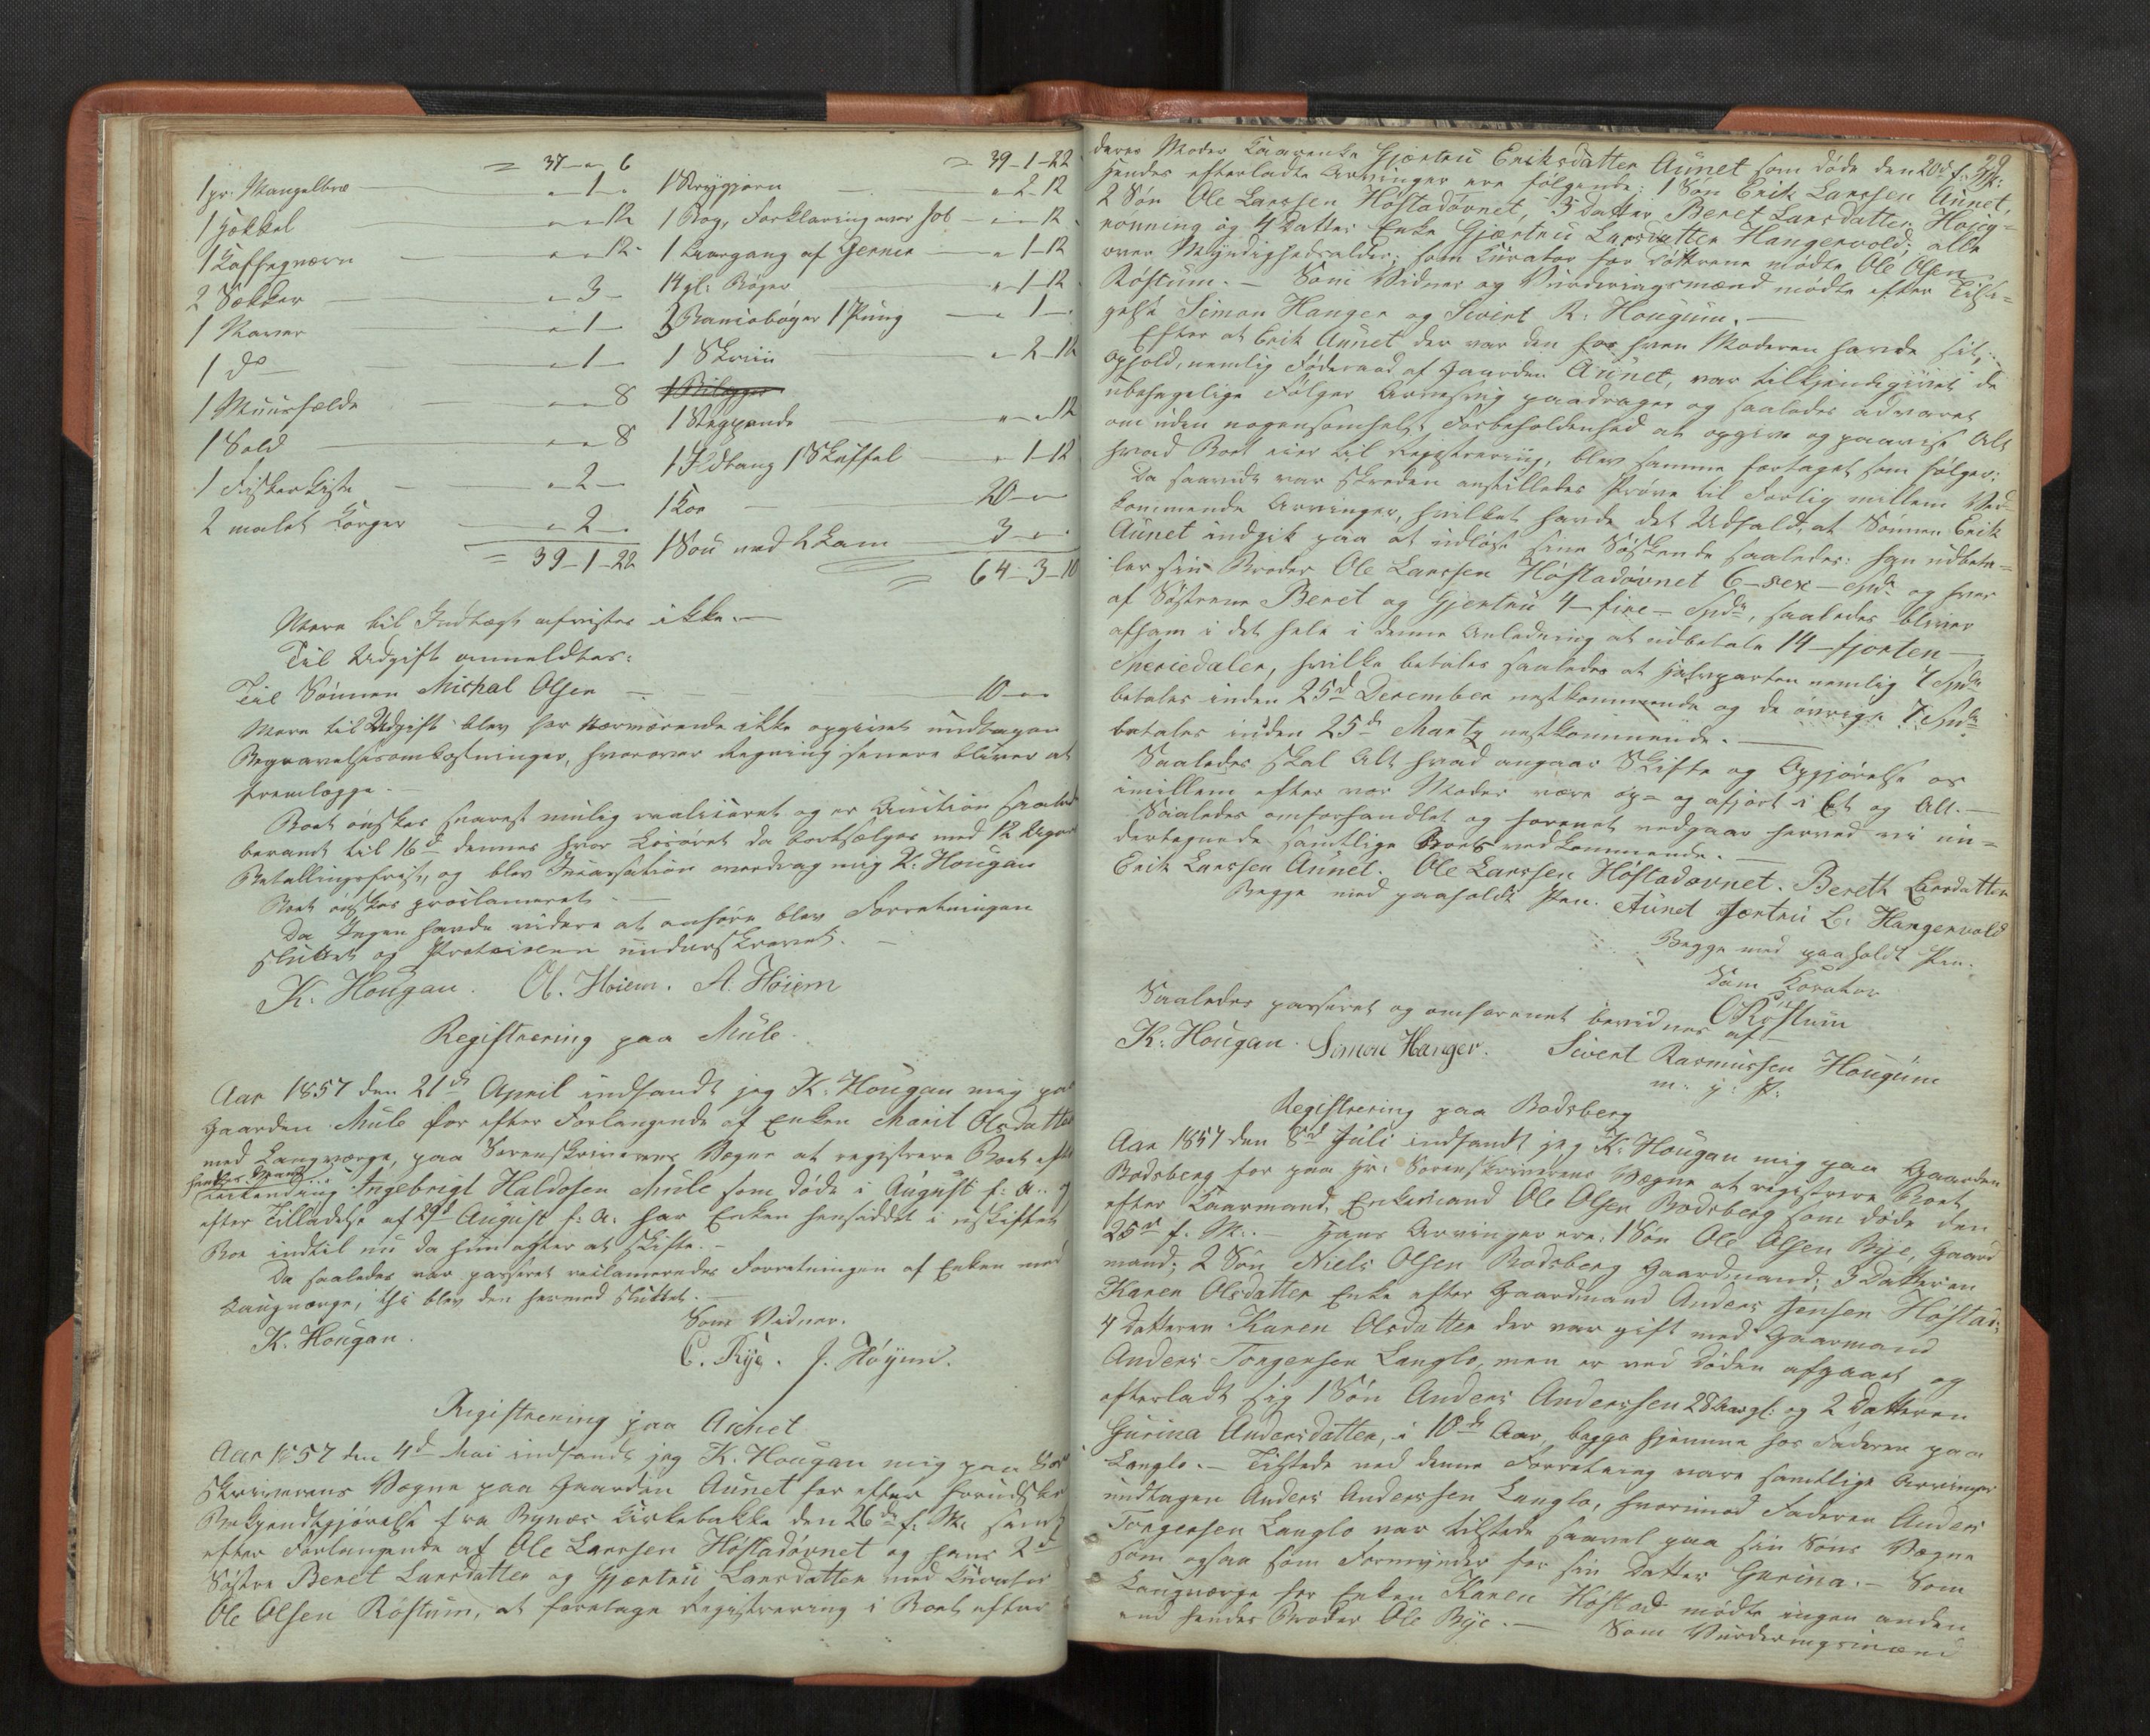 = 37 - " 6
1 pr. Mangelbræ — " 1 — "
1 Hekkel — " — " 12
1 Kaffeqværn — " — " 12
2 Sækker — " 3 —
1 Kover — " 1 —
1 do — " 1 —
1 Muurfælde — " — " 8
1 Sold — " — " 8
1 Fisker Kiste — " 2 —
2 malet Korger — " 2 — "
= 39 - 1 - 22
= 39 - 1 - 22
1 Strygjern — " 2 - 12
1 Bog, Forklaring over Job — " — " 12
1 Aargang af Gernes — " 1 - 12
14 gl. Bøger — " 1 - 12
3 Bøger 1 Pung — " 1 —
1 Skriin — " 2 - 12
1 Bilægger
1 Stegpande — " — " 12
1 Ildtang 1 Skuffel — " 1 - 12
1 Koe — 20 - " - "
1 Sou med 2 Lam — 3 - " - "
= 64 - 3 - 10
Mere til Indtægt anvistes ikke. —
Til Udgift anmeldtes:
Til Sønnen Michal Olsen — 10 - " - "
Mere til Udgift blev for nærværende ikke opgivet undtagen
Begravelsesomkostninger, hvorover Regning senere bliver at
fremlægge. —
Boet ønskes snarest mulig realiseret og er Auction saaled
berammet til 16d dennes hvor Løsøret da bortsælges med 12 Ugers
Betalingsfrist, og blev Incassation overdraget mig K. Hougan
Boet ønskes proclameret. —
Da Ingen havde videre at anføre blev Forretningen
sluttet og Protocollen underskrevet. —
K. Hougan. Ol. Høiem. A. Høiem
Registrering paa Mule.
Aar 1857 den 21d April indfandt jeg K. Hougan mig paa
Gaarden Mule for efter Forlangende af Enken Marit Olsdatter
med Laugværge, paa Sorenskriverens Vegne at registrere Boet efter
hendes Mand
Ingebrigt Haldosen Mule som døde i August f: A: og
efter Tilladelse af 29d August f: A: har Enken hensiddet i uskiftet
Boe indtil nu da hun agter at skifte. —
Da saaledes var passeret reclameredes Forretningen af Enken med
Laugværge, thi blev den hermed sluttet. —
K. Hougan.
Som Vidner.
C. Rye. J. Höyem.
Registrering paa Aunet
Aar 1857 den 4d Mai indfandt jeg K. Hougan mig paa Soren
skriverens Vegne paa Gaarden Aunet for efter
Bekjendtgjørelse fra Bynæs Kirkebakke den 26d f. M. samt
efter Forlangende af Ole Larssen Høstadøvnet og hans 2d
Søstre Beret Larsdatter og Gjertru Larsdatter med Curator
Ole Olsen Røstum, at foretage Registrering i Boet efter
29
deres Moder Kaarenke Gjertru Eriksdatter Aunet som døde den 20d f: M:
hendes efterladte Arvinger ere følgende: 1 Søn Erik Larssen Aunet,
2 Søn Ole Larssen Høstadøvnet, 3 Datter Beret Larsdatter
rønning og 4 Datter Enke Gjertru Larsdatter Hangervold, alle
over Myndighedsalder; som Curator for Døttrene mødte Ole Olsen
Røstum. — Som Vidner og Vurderingsmænd mødte efter Tilsi-
gelse Simon Hanger og Sivert R. Hougum. —
Efter at Erik Aunet der var den hos hvem Moderen havde sit
Ophold, nemlig Føderaad af Gaarden Aunet, var tilkjendegivet de
ubehagelige Følger Arvesvig paadrager og saaledes advaret
om uden nogensomhelst Forbeholdenhed at opgive og paavise Alt
hvad Boet eier til Registrering, blev samme foretaget som følger:
Da saavidt var skreden anstilledes Prøve til Forlig mellem Ved-
kommende Arvinger, hvilket havde det Udfald, at Sønnen Erik
Aunet indgik paa at udløse sine Søskende saaledes: han udbeta-
ler sin Broder Ole Larssen Høstadøvnet 6 - sex - Spdr og hver
af Søstrene Beret og Gjertru 4 - fire - Spdr, saaledes bliver
afham i det hele i denne Anledning at udbetale 14 - fjorten -
Speciedaler, hvilke betales saaledes at Halvparten nemlig 7 Spdr
betales inden 25d December nestkommende og de øvrige 7 Spdr
betales inden 25d Marts nestkommende. —
Saaledes skal Alt hvad angaar Skifte og Opgjørelse os
imillem efter vor Moder være op- og afgjort i Et og Alt. —
Saaledes omforhandlet og forenet vedgaar herved vi un-
dertegnede samtlige Boets vedkommende. —
Erik Larssen Aunet. Ole Larssen Høstadøvnet. Bereth Larsdatter
Begge med paaholdt Pen. Aunet Gjertru L: Hangervold
Begge med paaholdt Pen.
Som Kurator
O Röstum
Saaledes passeret og omforenet bevidnes af
K. Hougan. Simon Hanger. Sivert Rasmussen Hougum
m: p: P:
Registrering paa Bodsberg
Aar 1857 den 8d Juli indfandt jeg K. Hougan mig paa Gaarden
Bodsberg for paa Hr: Sorenskriverens Vegne at registrere Boet
efter Kaarmand, Enkemand Ole Olsen Bodsberg som døde den
25d f. M. — Hans Arvinger ere: 1 Søn Ole Olsen Bye, Gaard
mand; 2 Søn Niels Olsen Bodsberg Gaardmand; 3 Datteren
Karen Olsdatter Enke efter Gaardmand Anders Jensen Høstad;
4 Datteren Karen Olsdatter der var gift med Gaarmand
Anders Torgersen Langlo, men er ved Døden afgaaet og
efterladt sig 1 Søn Anders Anderssen 28 Aar gl: og 2 Datteren
Gurina Andersdatter, i 18d Aar, begge hjemme hos Faderen paa
Langlo. — Tilstede ved denne Forretning vare samtlige Arvinger
undtagen Anders Anderssen Langlo, hvorimod Faderen Anders
Torgersen Langlo var tilstede saavel paa sin Søns Vegne
som ogsaa som Formynder for sin Datter Gurina. — Som
Laugværge for Enken Karen Høstad mødte ingen anden
end hendes Broder Ole Bye. — Som Vurderingsmænd